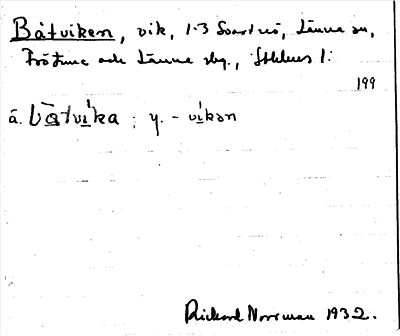 Båtviken, vik, 1:3 Svartnö, Länna sn,
Frötuna och Länna sbg., Sthlms l:
199
ā. bā̀tvi̍ka ; y. - vi̍kən
Rickard Norrman 1932.